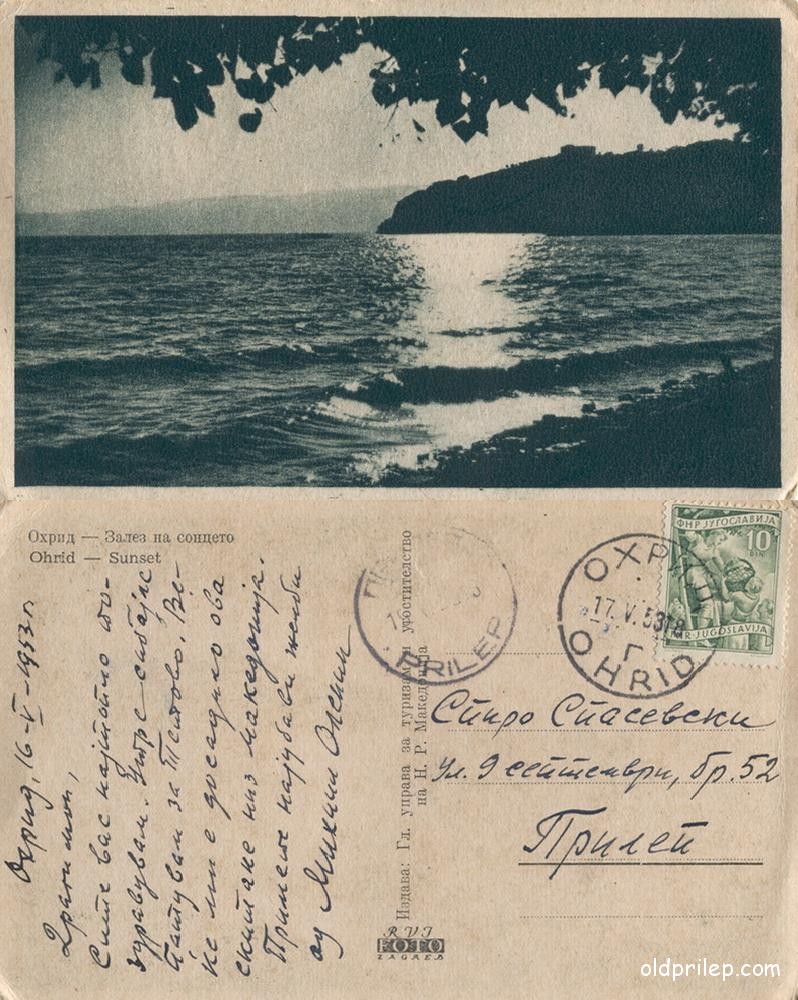 Охрид — Залез на сонцето
Ohrid — Sunset
Охрид, 16-V-1953 г.
Драги мои,
Сите вас најтопло по-
здравувам. Утре сабајле
патувам за Тетово. Ве-
ќе ми е досадно ова
скитање низ Македонија.
Примете најубави желби
од Михаил
Издава: Гл. управа за туризам и угостителство
на Н. Р. Македонија
RVI
FOTO
ZAGREB
PRILEP
ОХРИД
17.V.53 18
Г
OHRID
ФНР ЈУГОСЛАВИЈА
10
DIN
FNR JUGOSLAVIJA
Спиро Спасевски
Ул. 9 септември, бр. 52
Прилеп
oldprilep.com